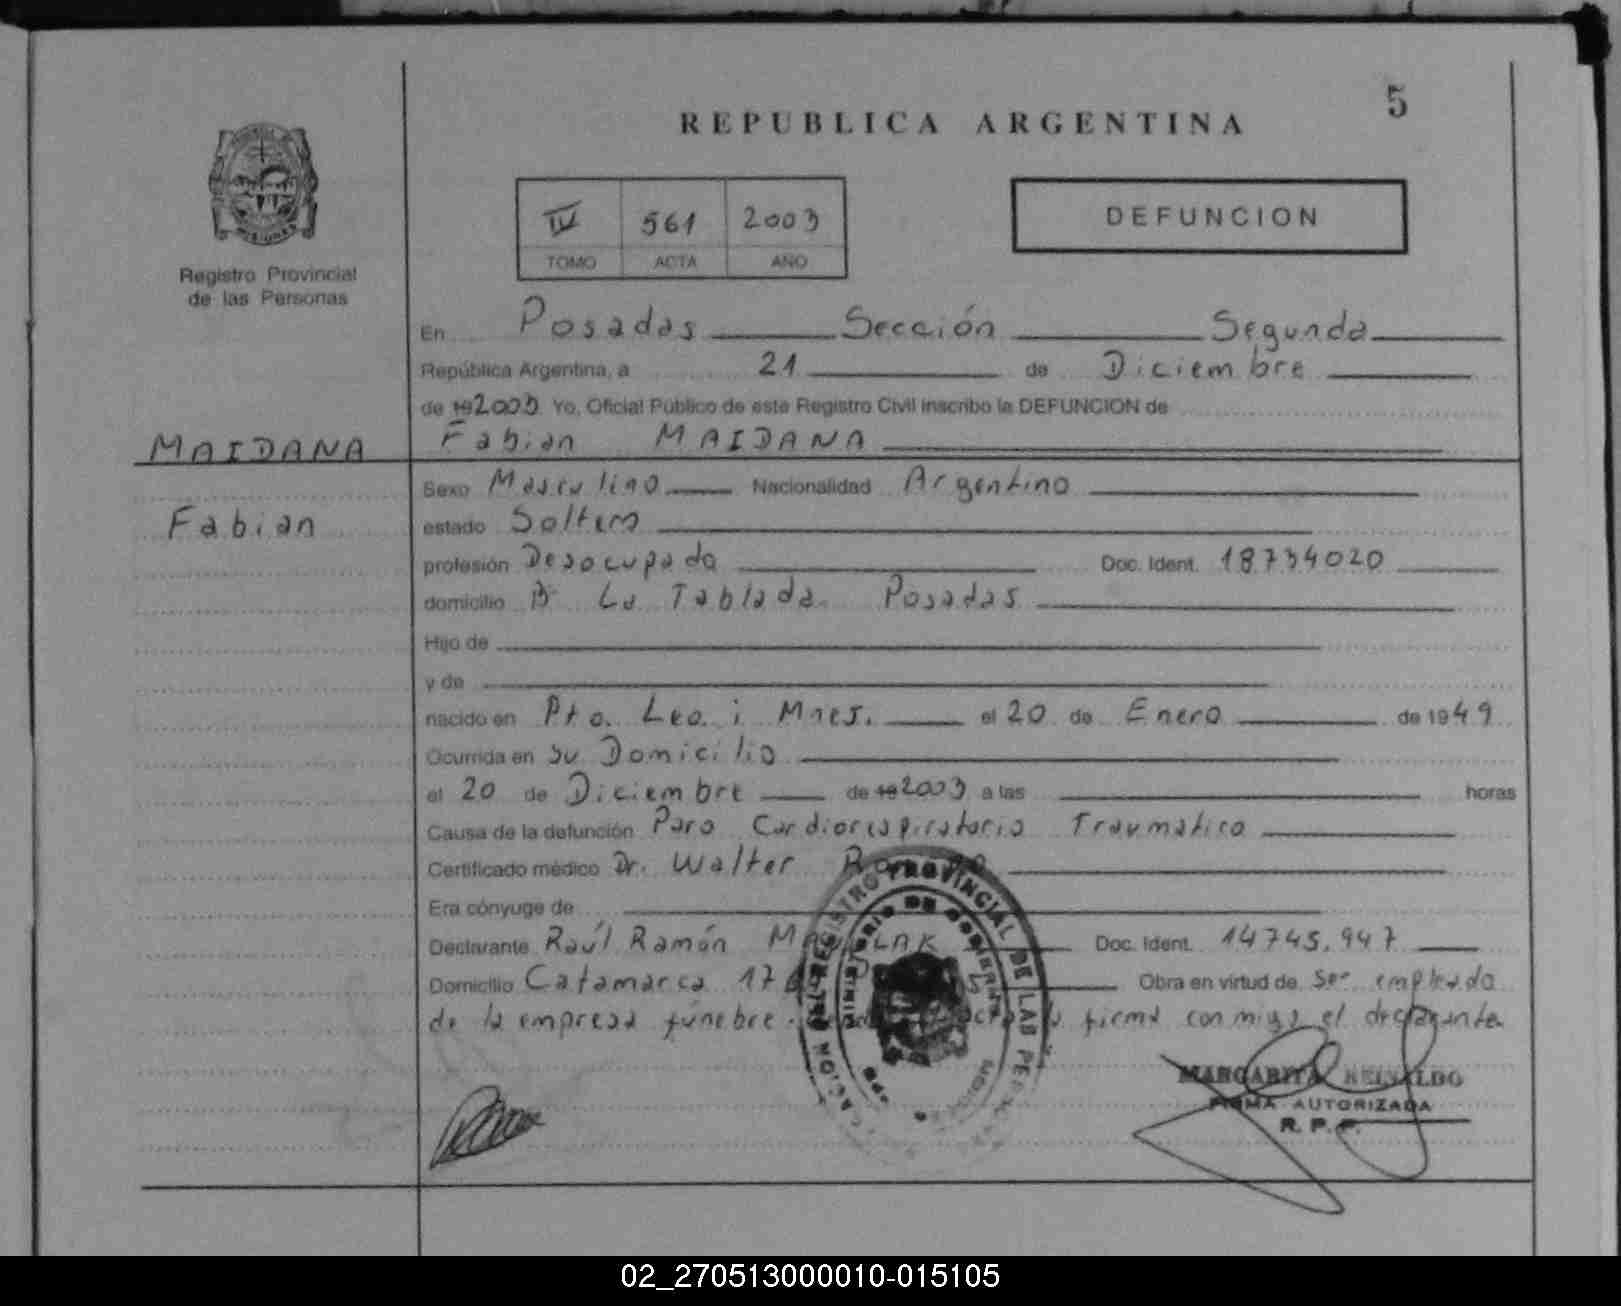 5
REPUBLICA ARGENTINA
IV 561 2003
TOMO ACTA AÑO
DEFUNCION
MISIONES
Registro Provincial
de las Personas
En Posadas Sección Segunda
República Argentina, a 21 de Diciembre
de 192003 Yo, Oficial Público de este Registro Civil inscribo la DEFUNCION de
MAIDANA
Fabian MAIDANA
Fabian
Sexo Masculino Nacionalidad Argentino
estado Soltero
profesión Desocupado Doc. Ident. 18.734020
domicilio Bº La Tablada. Posadas
Hijo de
y de
nacido en Pto. Leo. i Mnes. el 20 de Enero de 1949
Ocurrida en su Domicilio
el 20 de Diciembre de 192003 a las horas
Causa de la defunción Paro Cardiorespiratorio Traumatico
Certificado médico Dr. Walter
Era cónyuge de
Declarante Raúl Ramón Doc. Ident. 14745.947
Domicilio Catamarca Obra en virtud de Ser empleado
de la empresa fúnebre. firma conmigo el declarante
REGISTRO PROVINCIAL DE LAS PERSONAS
MINISTERIO DE GOBIERNO
MARGARITA REINALDO
FIRMA AUTORIZADA
R. P. P.
02_270513000010-015105